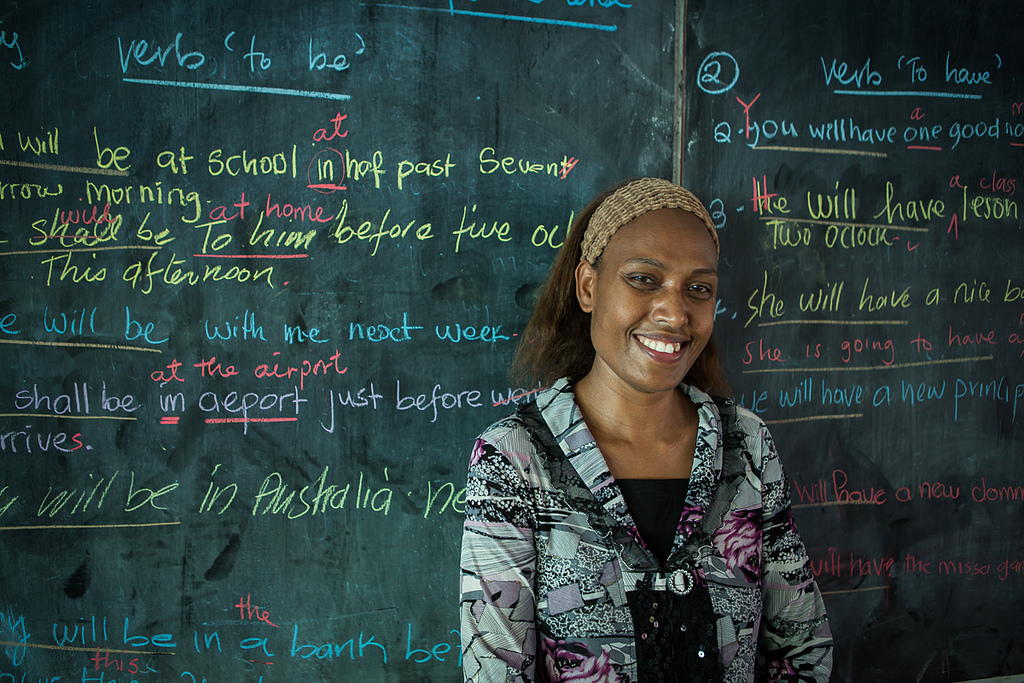 verb 'to be'
at
will be at school in haf past Seven
morning.
will at home
shall be To him before five
This afternoon.
will be with me next week.
at the airport
shall be in aeport just before
rrives.
will be in Australia
the
will be in a bank be
this
②
Verb 'To have'
Y a
2. you will have one good
a class
3. He will have leson
Two oclock.
she will have a nice
She is going to have a
will have a new
will have a new
will have the